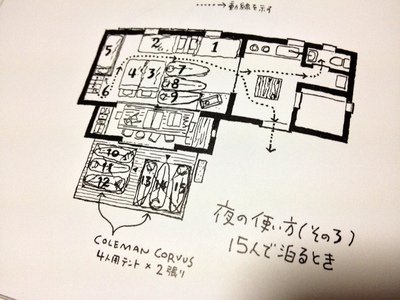 .....→ 動線を示す
1
2
3
4
5
6
7
8
9
10
11
12
13
14
15
COLEMAN CORVUS
4人用テント×2張り
夜の使い方(その3)
15人で泊るとき